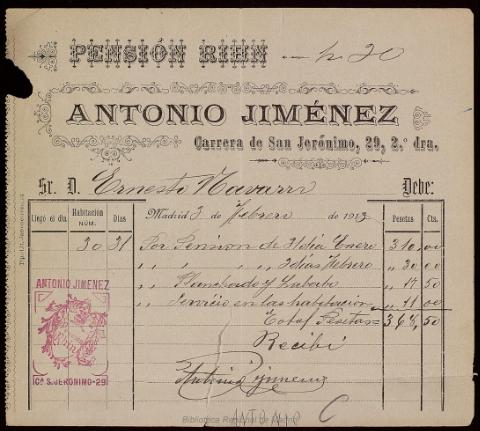 PENSIÓN RIHN
ANTONIO JIMÉNEZ
Carrera de San Jerónimo, 29, 2.º dra.
Sr. D. Ernesto Navarro Debe:
Llegó el día. Habitación NÚM. Días Madrid 3 de Febrero de 1913 Pesetas Cts.
30 31 Por Pension de 31 dia Enero 310,00
" " " " 3 dias Febrero " 30 00
" Planchado y " 17 50
" Servicio en las habitacion " 11 00
Total Pesetas = 368,50
Recibí
Antonio Jimenez
ANTONIO JIMENEZ
Cª S. JERONIMO-29
ANTONIO C
Biblioteca Regional de